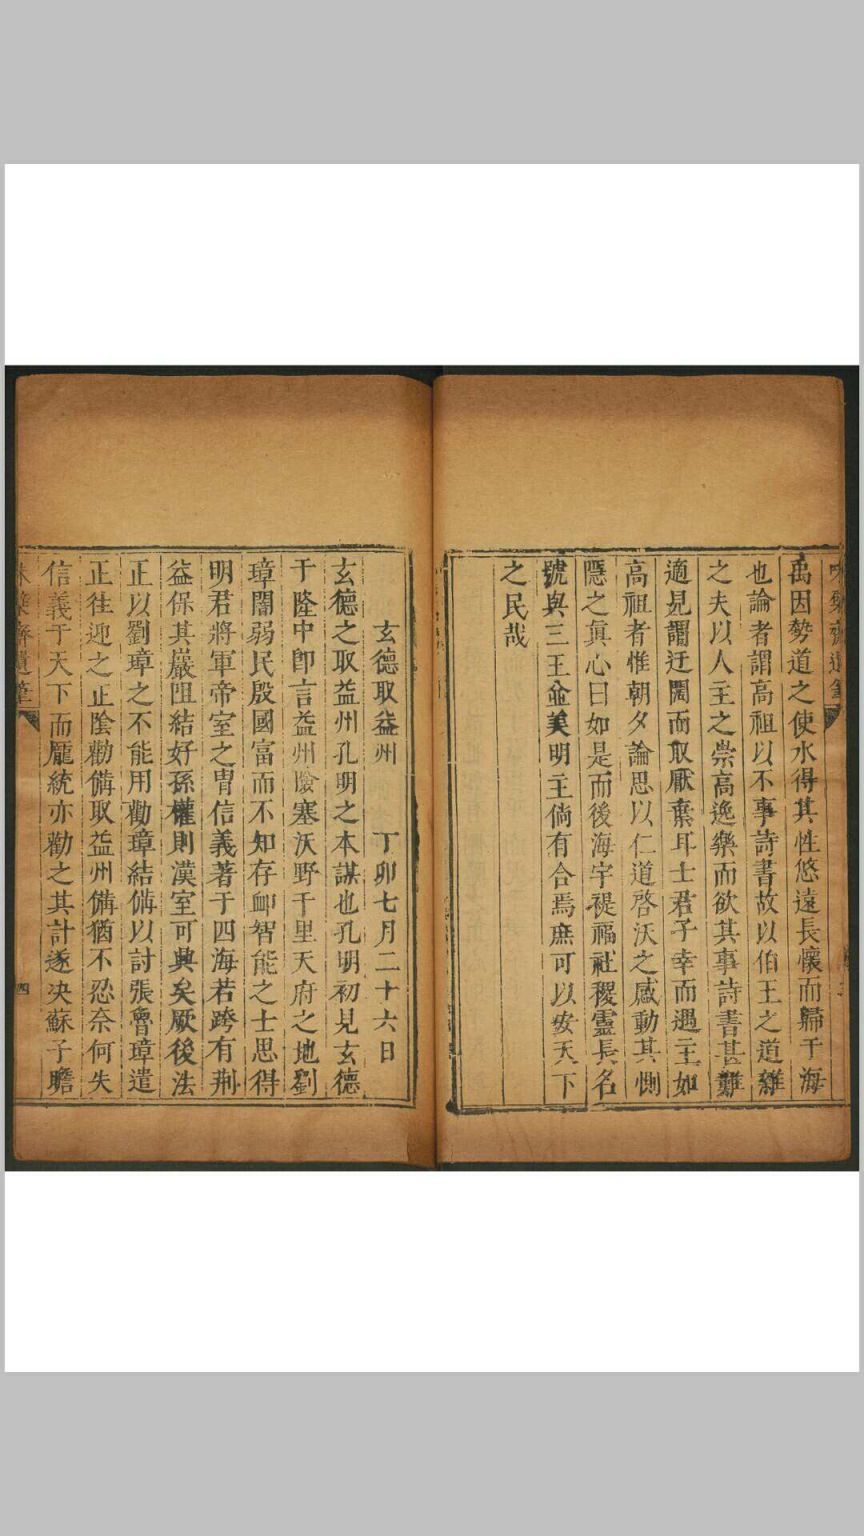 禹因勢道之使水得其性悠遠長懷而歸于海
也論者謂高祖以不事詩書故以伯王之道雜
之夫以人主之崇高逸樂而欲其事詩書甚難
適見謂迂闊而取厭棄耳士君子幸而遇主如
高祖者惟朝夕論思以仁道啓沃之感動其惻
隱之眞心曰如是而後海宇禔福社稷靈長名
號與三王並美明主倘有合焉庶可以安天下
之民哉
玄德取益州 丁卯七月二十六日
玄德之取益州孔明之本謀也孔明初見玄德
于隆中卽言益州險塞沃野千里天府之地劉
璋闇弱民殷國富而不知存卹智能之士思得
明君將軍帝室之冑信義著于四海若跨有荆
益保其巖阻結好孫權則漢室可興矣厥後法
正以劉璋之不能用勸璋結備以討張魯璋遣
正往迎之正陰勸備取益州備猶不忍奈何失
信義于天下而龐統亦勸之其計遂决蘇子瞻
四